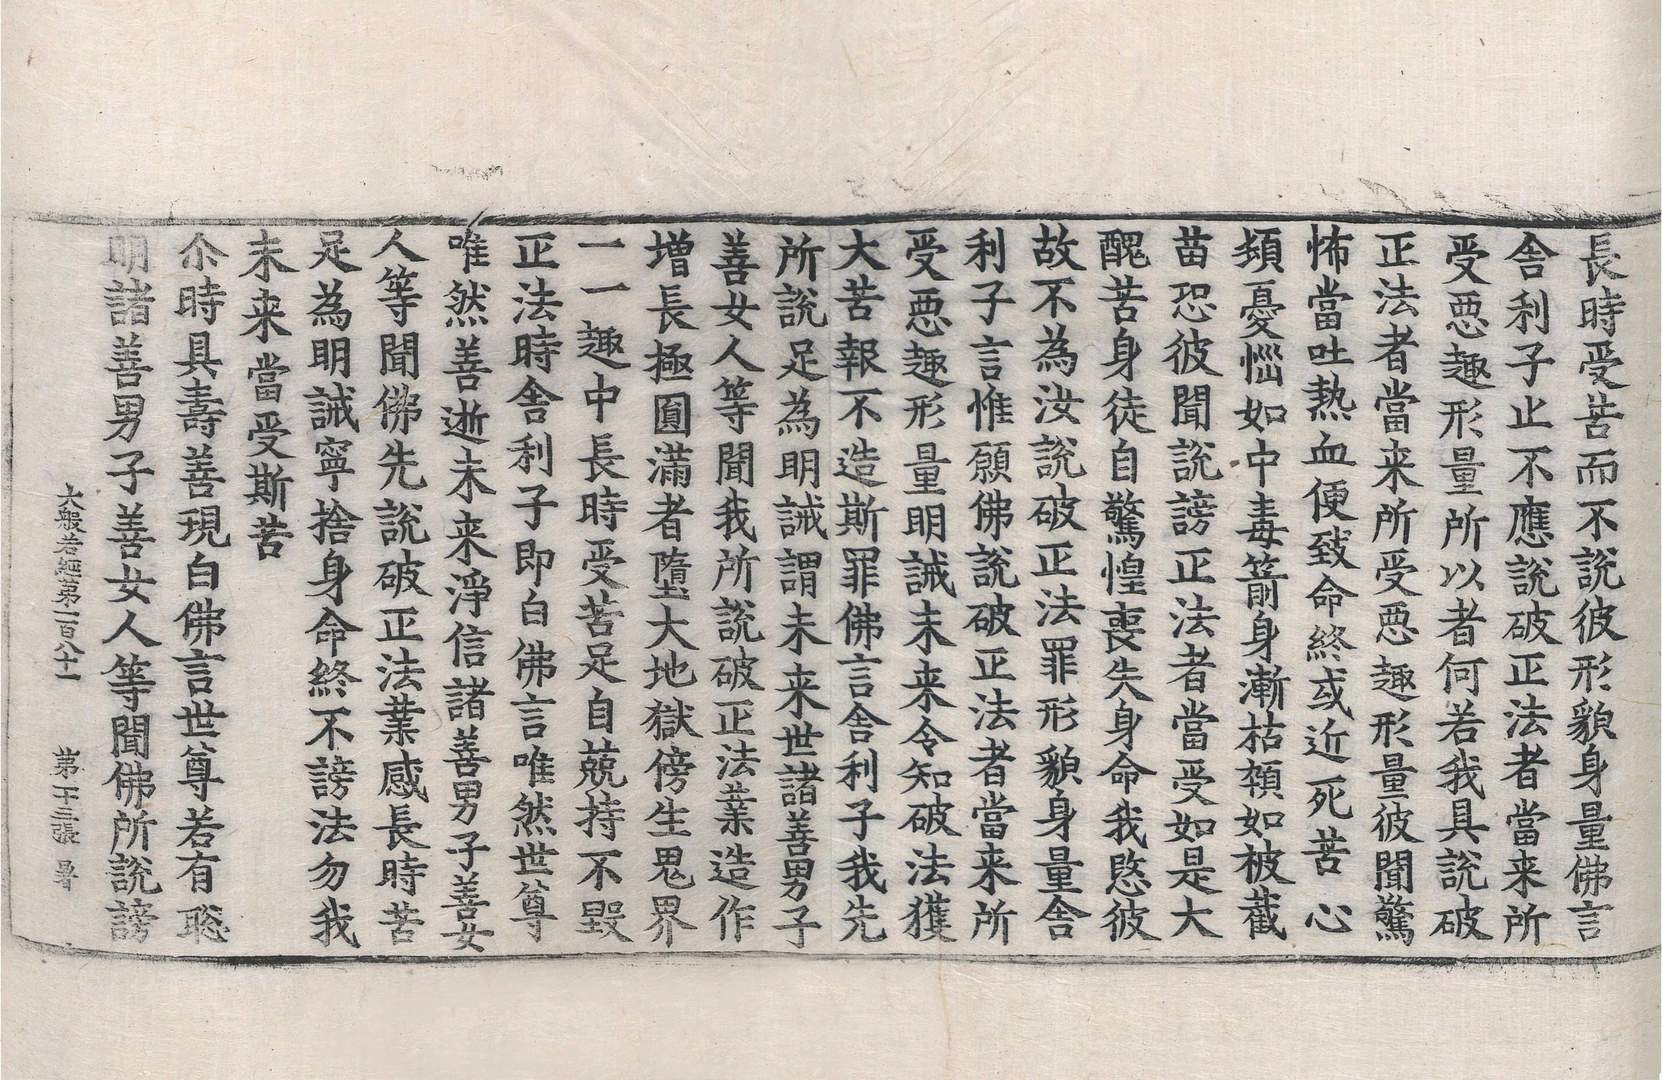 長時受苦而不說彼形貌身量佛言
舍利子止不應說破正法者當来所
受惡趣形量所以者何若我具說破
正法者當来所受惡趣形量彼聞驚
怖當吐熱血便致命終或近死苦心
頓憂惱如中毒箭身漸枯顇如被截
苗恐彼聞說謗正法者當受如是大
醜苦身徒自驚惶喪失身命我愍彼
故不為汝說破正法罪形貌身量舍
利子言惟願佛說破正法者當来所
受惡趣形量明誡未来令知破法獲
大苦報不造斯罪佛言舍利子我先
所說足為明誡謂未来世諸善男子
善女人等聞我所說破正法業造作
增長極圓滿者墮大地獄傍生鬼界
一一趣中長時受苦足自兢持不毀
正法時舍利子即白佛言唯然世尊
唯然善逝未来淨信諸善男子善女
人等聞佛先說破正法業感長時苦
足為明誡寧捨身命終不謗法勿我
未来當受斯苦
尒時具壽善現白佛言世尊若有聡
明諸善男子善女人等聞佛所說謗
大般若經第一百八十一 第十三張